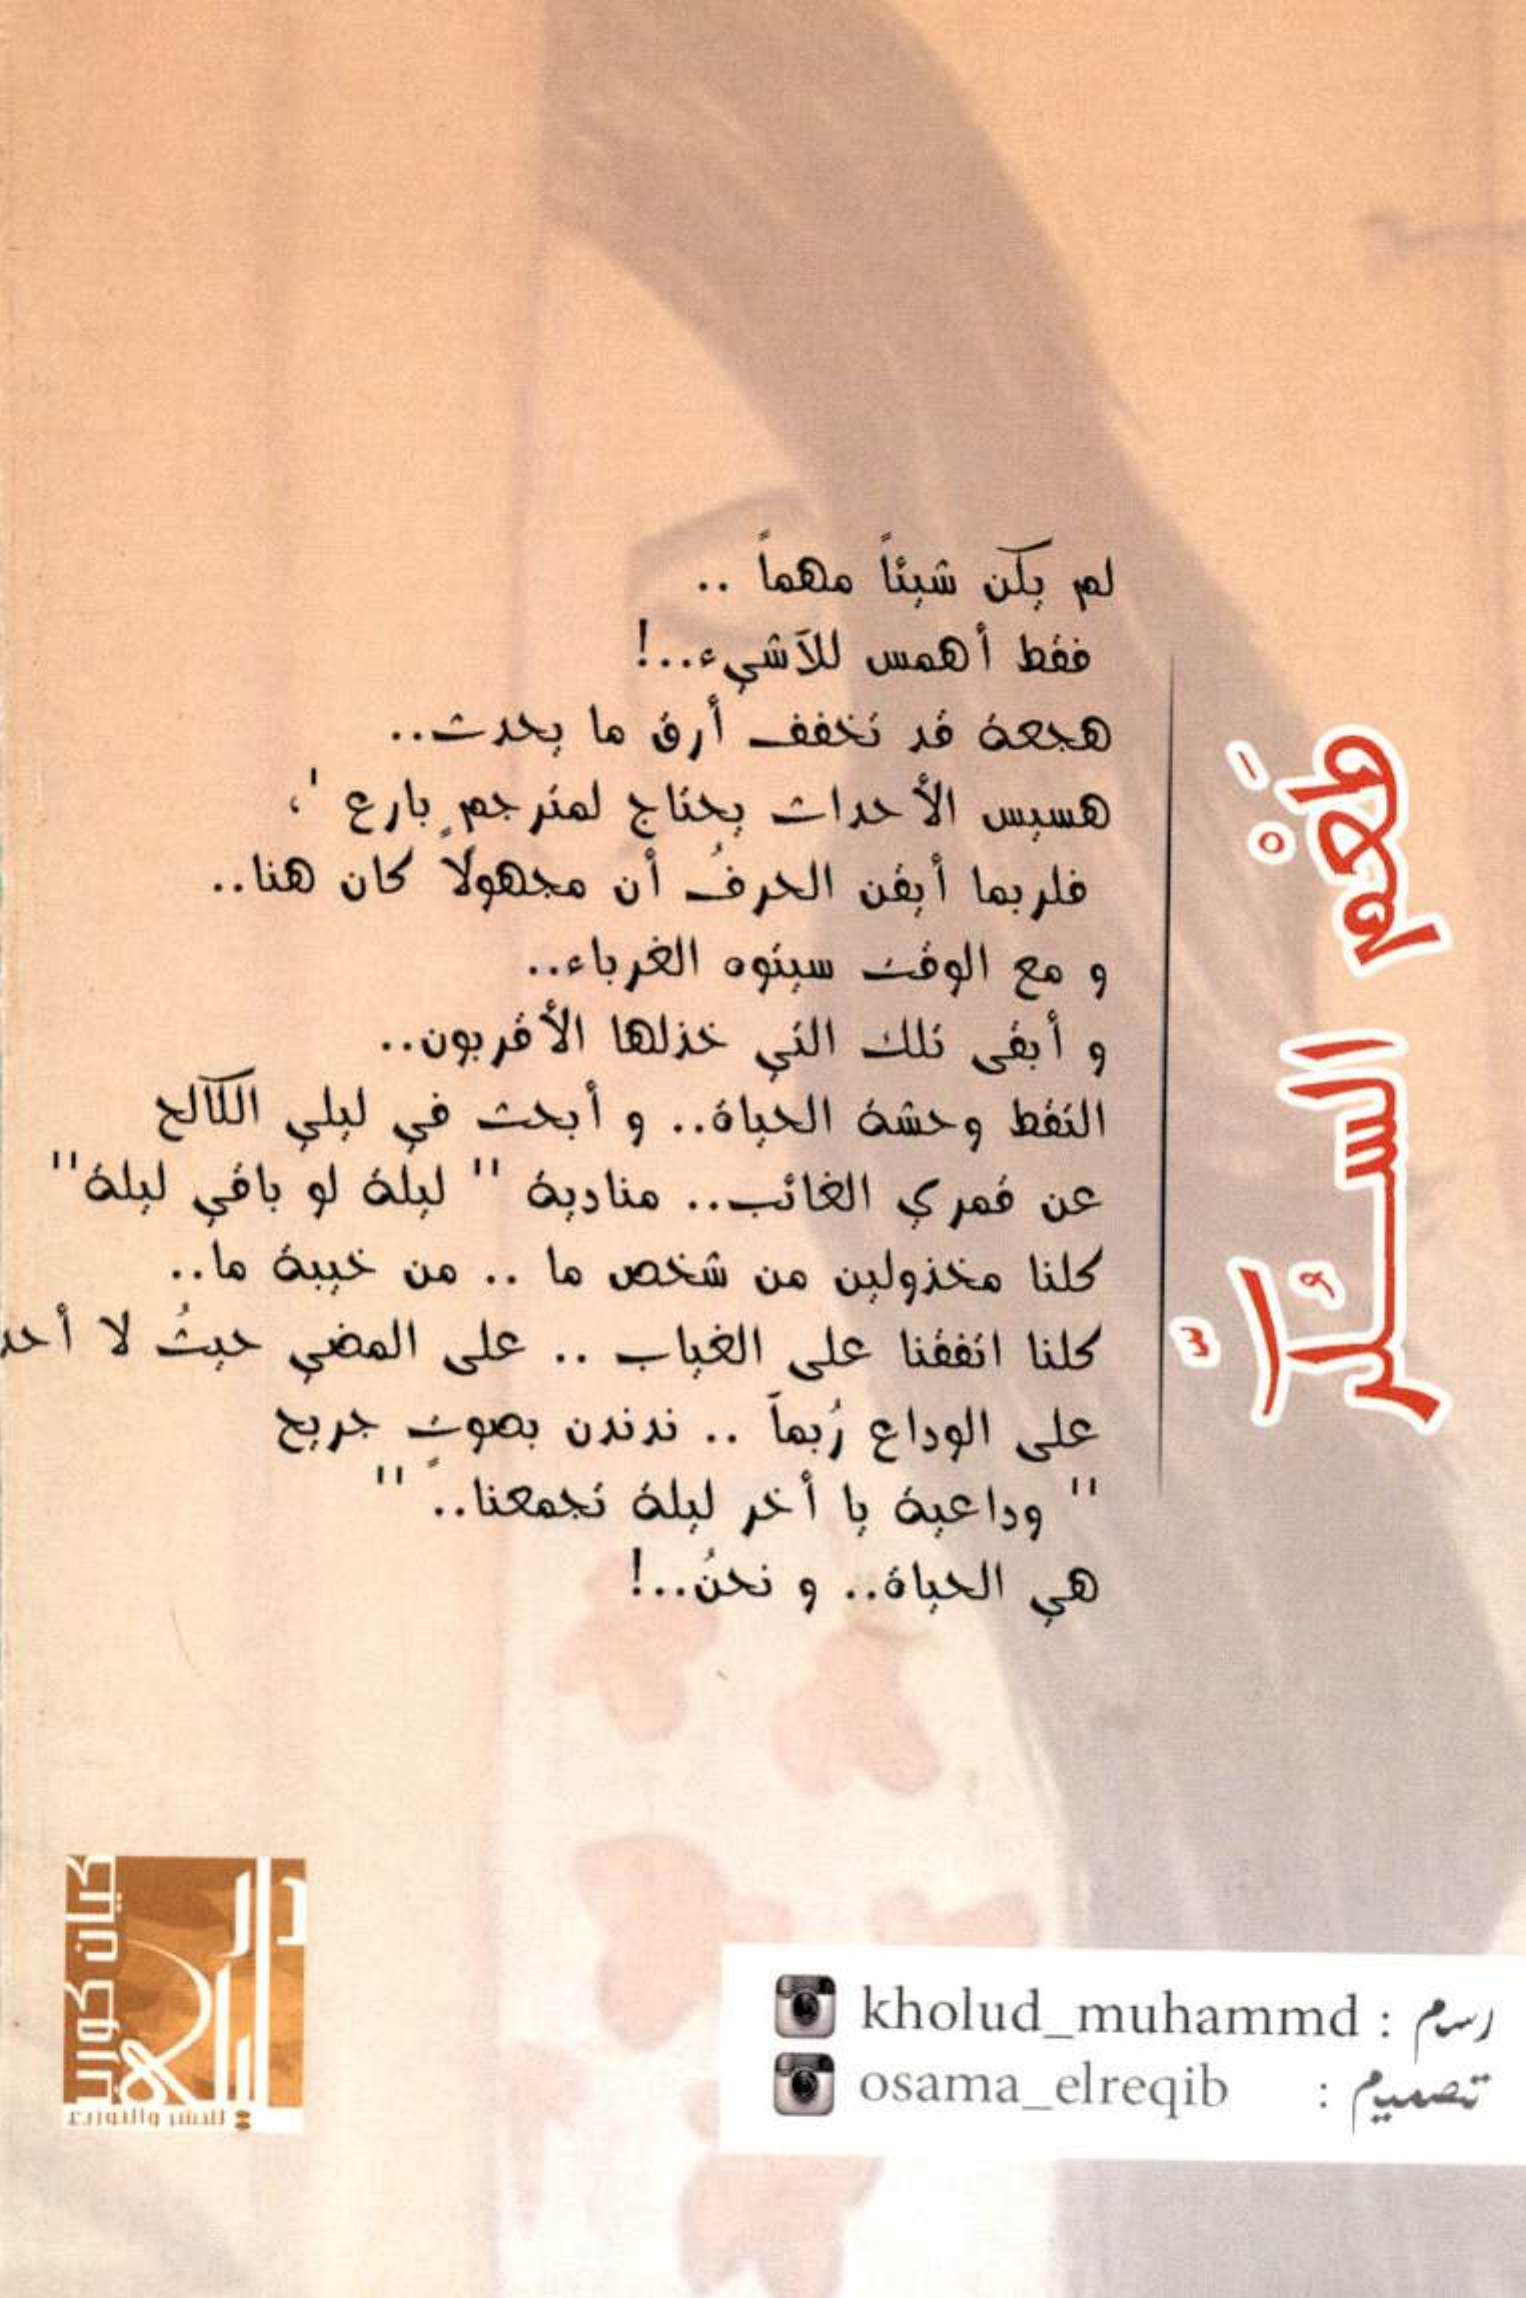 طَعْم السُّكَّر
لم يكن شيئاً مهماً ..
فقط أهمس للآشيء..!
هجعة قد تخفف أرق ما يحدث..
هسيس الأحداث يحتاج لمترجمٍ بارع '،
فلربما أيقن الحرفُ أن مجهولاً كان هنا..
و مع الوقت سيتوه الغرباء..
و أبقى تلك التي خذلها الأقربون..
التقط وحشة الحياة.. و أبحث في ليلي الكالح
عن قمري الغائب.. منادية " ليلة لو باقي ليلة"
كلنا مخذولين من شخص ما .. من خيبة ما..
كلنا اتفقنا على الغياب .. على المضي حيثُ لا أحد
على الوداع رُبماً .. ندندن بصوتٍ جريح
" وداعية يا أخر ليلة تجمعنا.. "
هي الحياة.. و نحنُ..!
رسم : kholud_muhammd
تصميم : osama_elreqib
دار
كيان كورب
للنشر والتوزيع